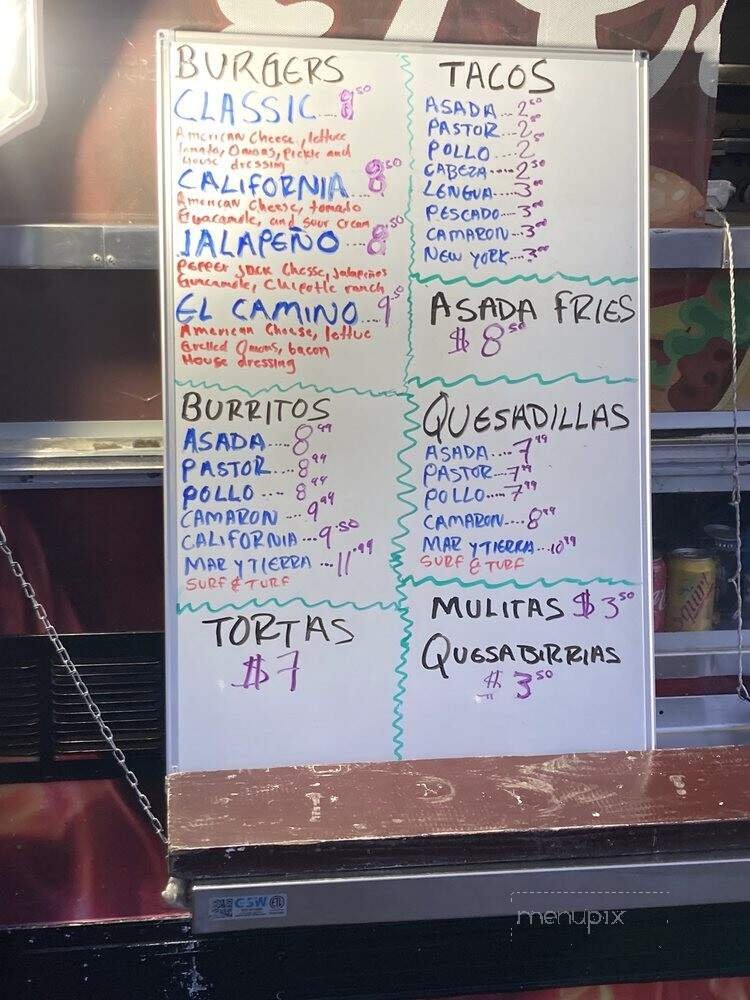 BURGERS
CLASSIC...8.50
American Cheese, lettuce
tomato, Onions, Pickle and
House dressing
CALIFORNIA...8.50
American Cheese, tomato
Guacamole, and sour cream
JALAPEÑO...8.50
PEPPER JACK Cheese, Jalapeños
Guacamole, Chipotle ranch
EL CAMINO...9.50
American Cheese, lettuce
Grilled Onions, bacon
House dressing
BURRITOS
ASADA....8.99
PASTOR...8.99
POLLO....8.99
CAMARON...9.99
CALIFORNIA...9.50
MAR Y TIERRA...11.99
SURF & TURF
TORTAS
$7
TACOS
ASADA...2.50
PASTOR...2.50
POLLO....2.50
CABEZA....2.50
LENGUA...3.00
PESCADO...3.00
CAMARON...3.00
NEW YORK...3.00
ASADA FRIES
$8.50
QUESADILLAS
ASADA....7.99
PASTOR...7.99
POLLO....7.99
CAMARON...8.99
MAR Y TIERRA...10.99
SURF & TURF
MULITAS $3.50
QUESABIRRIAS
$3.50
GSW
menupix